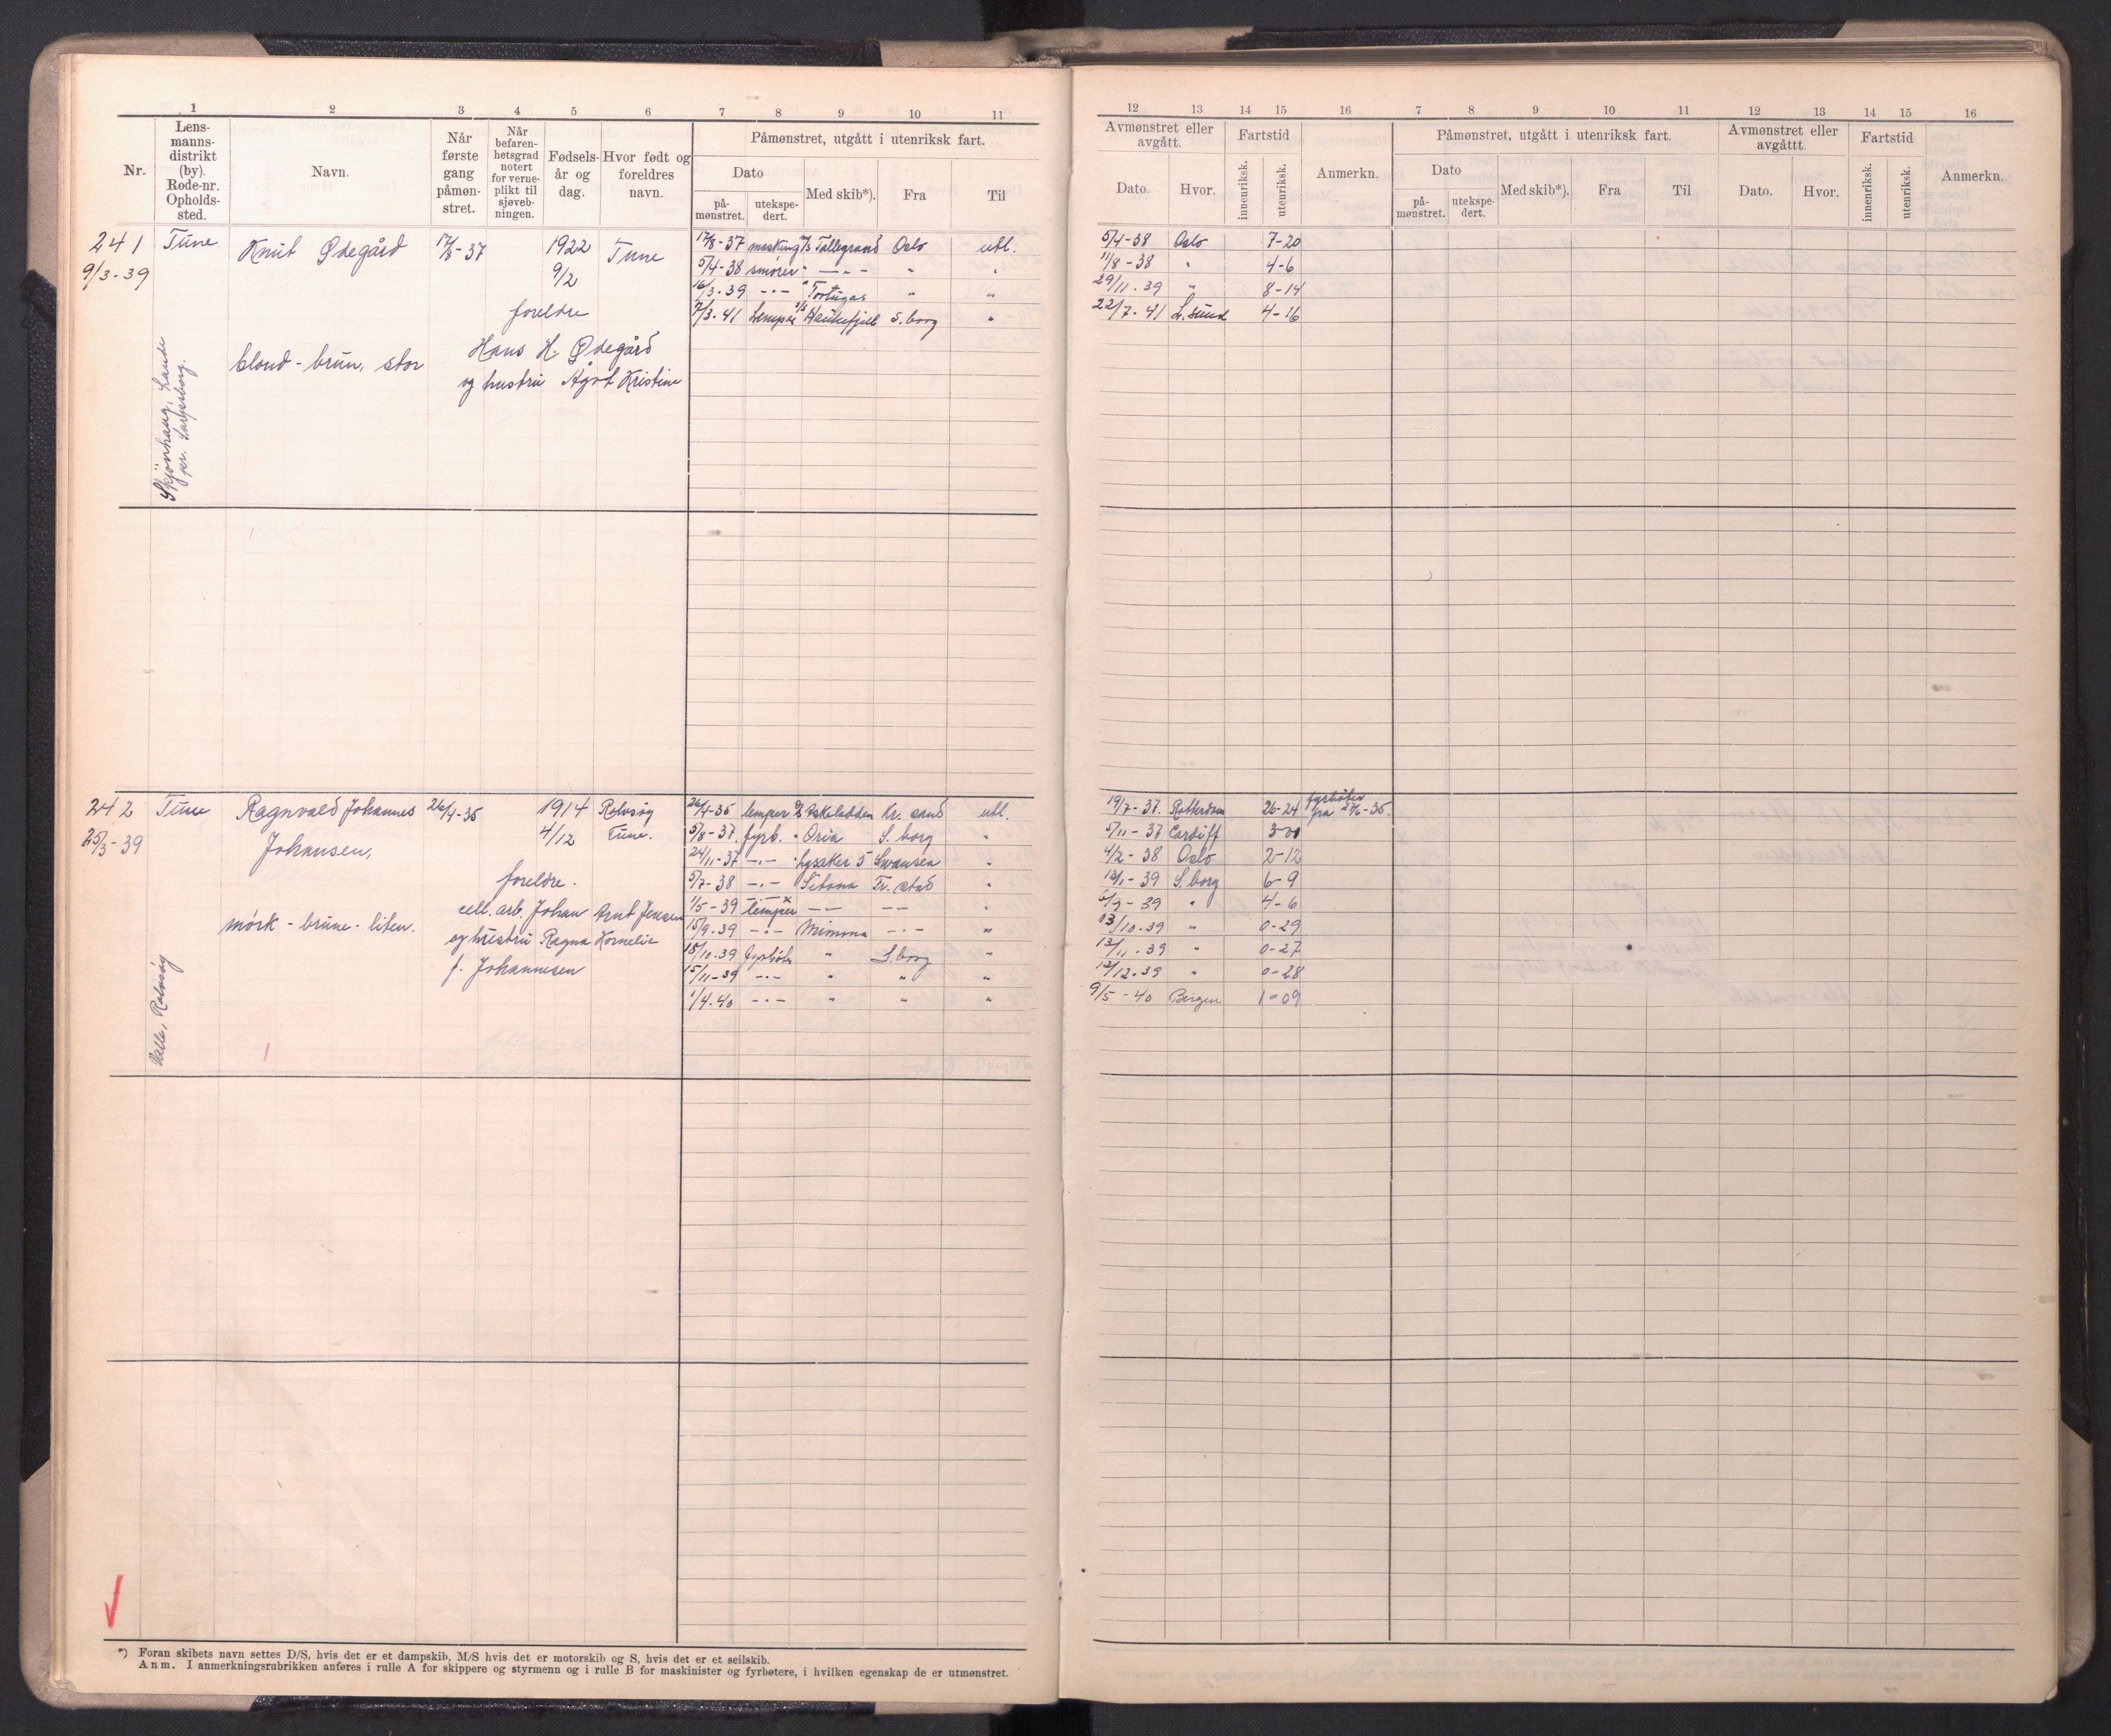 1 2 3 4 5 6 7 8 9 10 11
Nr.
Lens-
manns-
distrikt
(by).
Rode-nr.
Opholds-
sted.
Navn.
Når
første
gang
påmøn-
stret.
Når
befaren-
hetsgrad
notert
for verne-
plikt til
sjøveb-
ningen.
Fødsels-
år og
dag.
Hvor født og
foreldres
navn.
Påmønstret, utgått i utenriksk fart.
Dato
på-
mønstret.
utekspe-
dert.
Med skib*).
Fra
Til
241 Tune Knut Ødegård 17/8-37 1922 Tune 17/8-37 maskung M/S Tallegrand Oslo utl.
9/3-39 9/2 5/4-38 smører " -"- " "
16/3-39 -"- " Tortugas " "
foreldre 17/3-41 Lemper Haukefjell S.borg "
Hans H. Ødegård
blond - brun, stor og hustru Ågot Kristine
Skjönhaug, Lande
pr. Sarpsborg.
242 Tune Ragnvald Johannes 26/4-35 1914 Rolvsøy 26/4-35 lemper D/S Askeladden Kr. sand utl.
25/3-39 Johansen, 4/12 Tune. 5/8-37 fyrb. " Oria S. borg "
24/11-37 -"- " Lysaker 5 Swansea "
foreldre. 5/7-38 -"- Sitona Fr. stad "
cell. arb. Johan Arnt Jensen 1/5-39 lemper -"- -"- "
mörk - brune - liten. og hustru Ragna Kornelie 15/9-39 -"- Mimona -"- "
f. Johannesen 18/10-39 fyrböter " S.borg "
15/11-39 -"- " " "
1/4-40 -"- " " "
Valle, Rolvsøy
*) Foran skibets navn settes D/S, hvis det er et dampskib, M/S hvis det er motorskib og S, hvis det er et seilskib.
Anm. I anmerkningsrubrikken anføres i rulle A for skippere og styrmenn og i rulle B for maskinister og fyrbøtere, i hvilken egenskap de er utmønstret.
12 13 14 15 16 7 8 9 10 11 12 13 14 15 16
Avmønstret eller
avgått.
Dato.
Hvor.
Fartstid
innenriksk.
utenriksk.
Anmerkn.
Påmønstret, utgått i utenriksk fart.
Dato
på-
mønstret.
utekspe-
dert.
Med skib*).
Fra
Til
Avmønstret eller
avgåttt.
Dato.
Hvor.
Fartstid
innenriksk.
utenriksk.
Anmerkn.
5/4-38 Oslo 7-20
11/8-38 " 4-6
29/11-39 " 8-14
22/7-41 L.sund 4-16
19/7-37. Rotterdam 26-24 fyrböter
fra 2/6-35.
5/11-37 Cardiff
4/2-38 Oslo 2-12
13/1-39 S.borg 6-9
6/9-39 " 4-6
13/10-39 " 0-29
13/11-39 " 0-27
12/12-39 " 0-28
9/5-40 Bergen 1-09